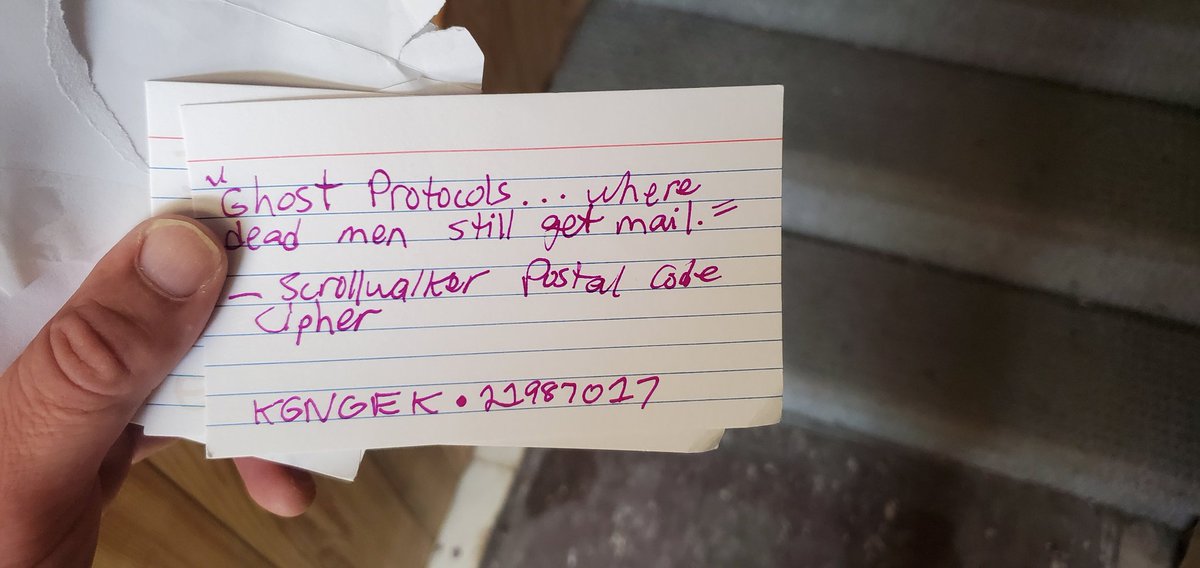 "Ghost Protocols... where
dead men still get mail."
— Scrollwalker Postal Code
Cipher
KGNGEK • 21987017